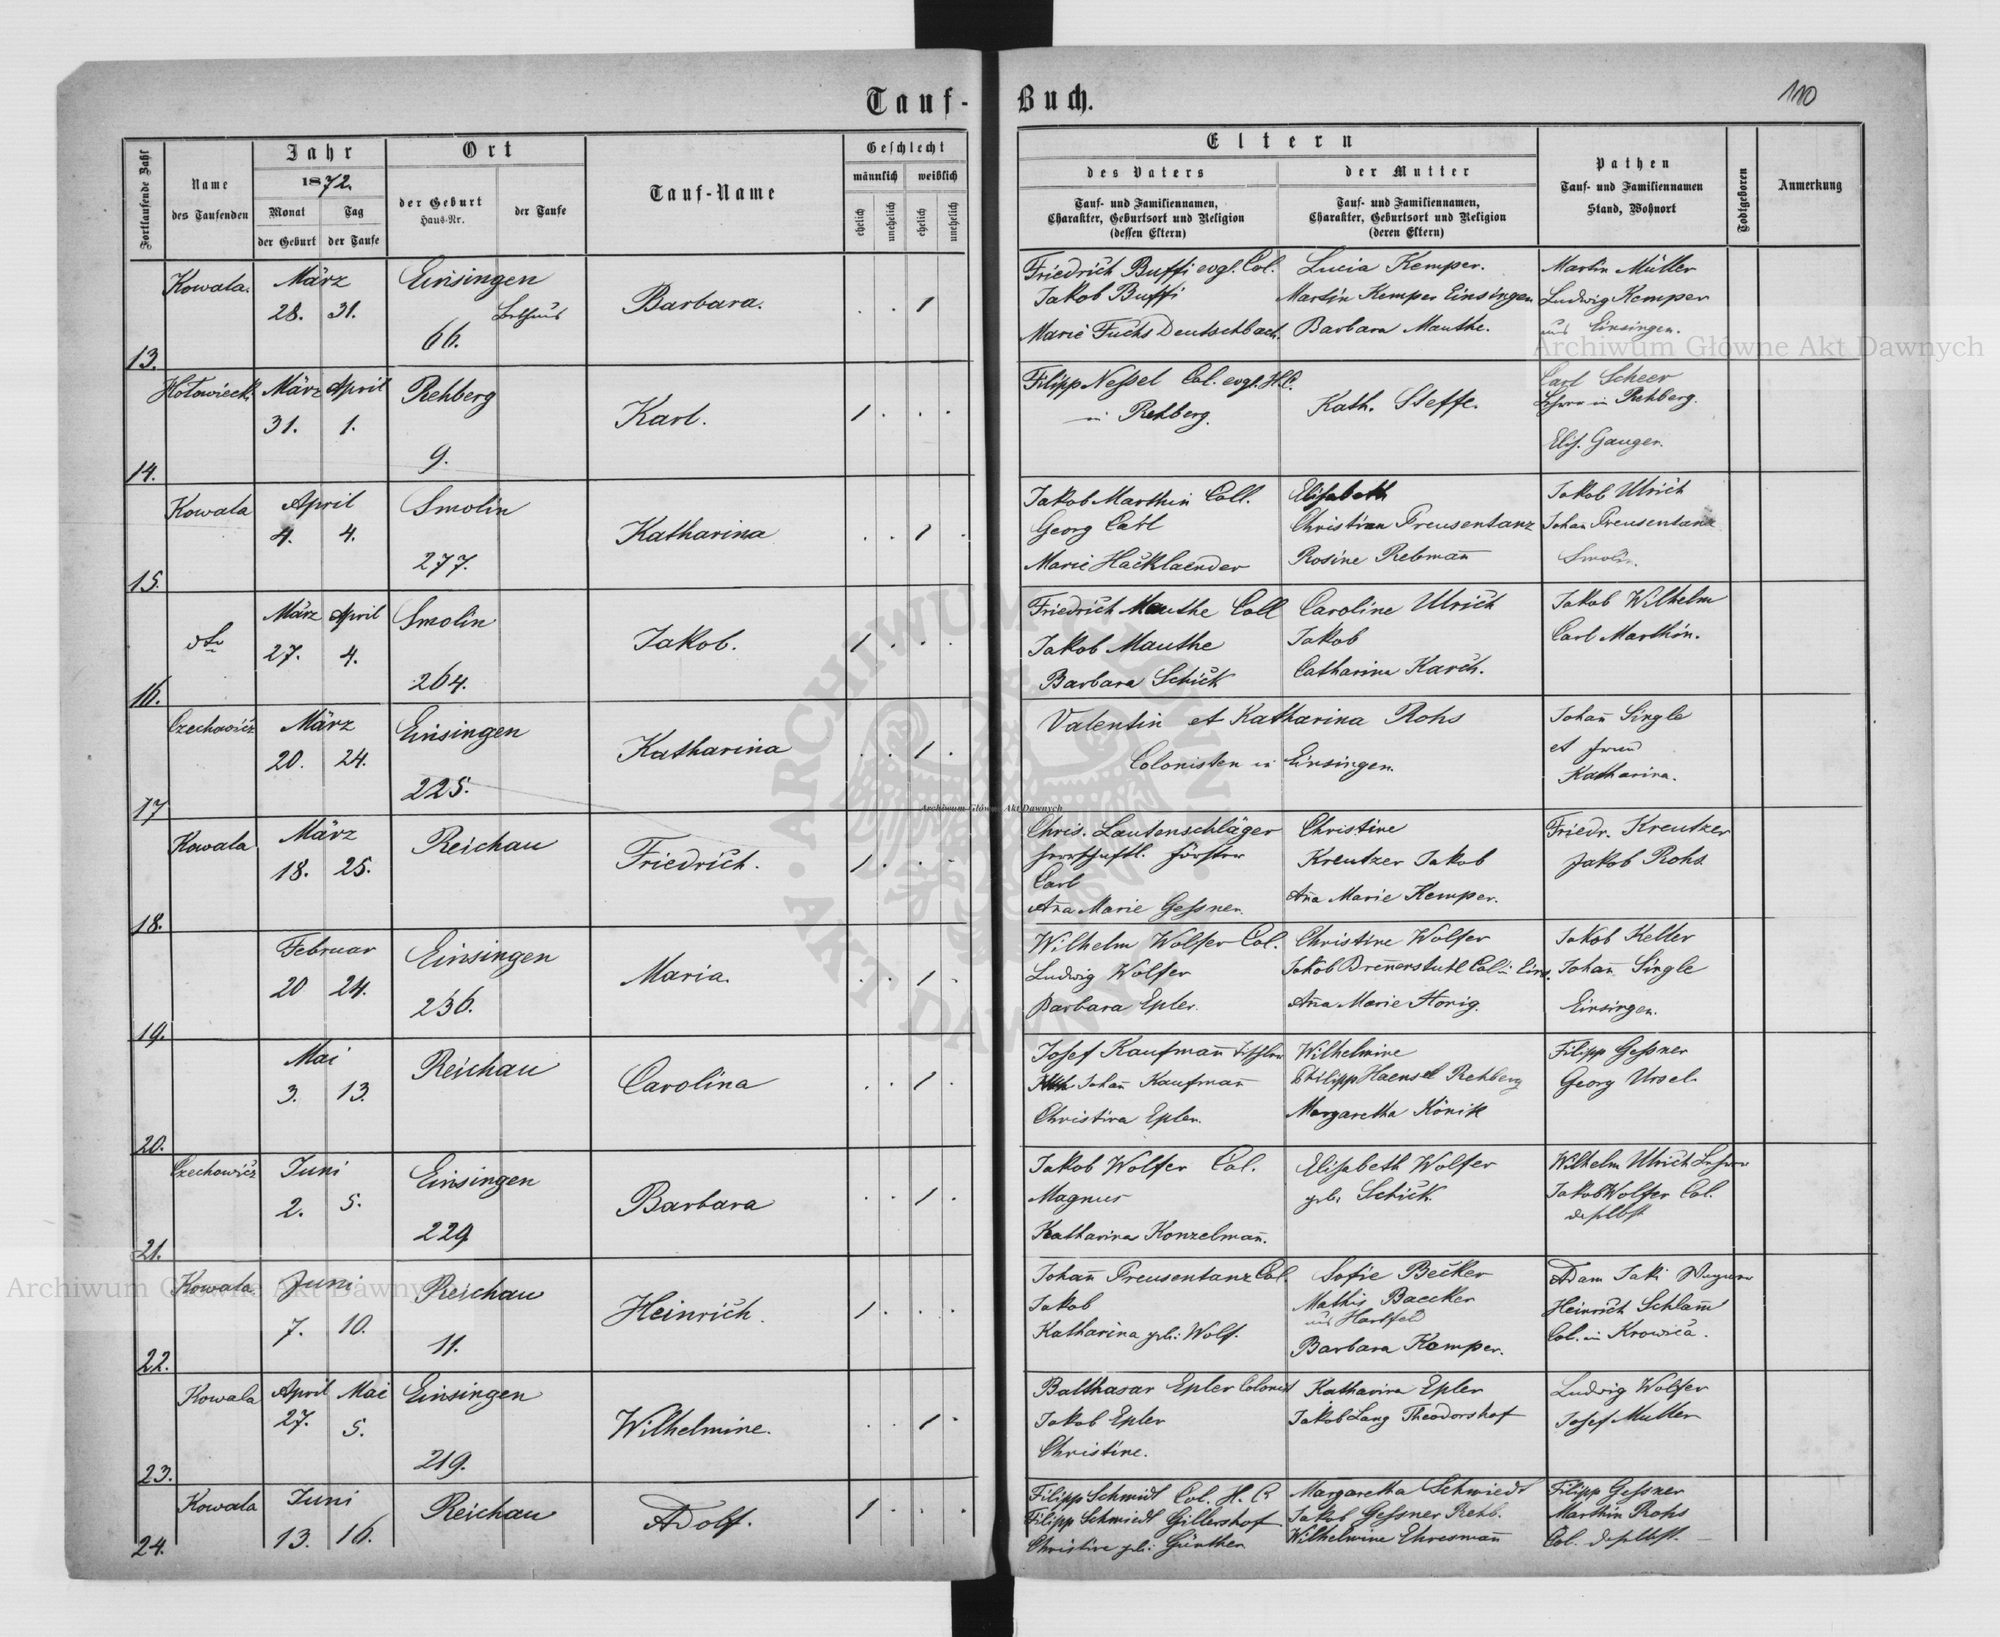 Tauf-Buch.
110
Fortlaufende Zahl
Name des Taufenden
Jahr
1872.
Monat
Tag
der Geburt
der Taufe
Ort
der Geburt
Haus-Nr.
der Taufe
Tauf-Name
Geschlecht
männlich
weiblich
ehelich
unehelich
ehelich
unehelich
Eltern
des Vaters
Tauf- und Familiennamen,
Charakter, Geburtsort und Religion
(dessen Eltern)
der Mutter
Tauf- und Familiennamen,
Charakter, Geburtsort und Religion
(deren Eltern)
Pathen
Tauf- und Familiennamen
Stand, Wohnort
Todtgeboren
Anmerkung
13. Kowala. März 28. 31. Einsingen 66. Bethaus Barbara. 1
Friedrich Buffi evgl. Col.
Jakob Buffi
Marie Fuchs Deutschbach.
Lucia Kemper.
Martin Kemper Einsingen
Barbara Mauthe.
Martin Müller
Ludwig Kemper
aus Einsingen.
14. Hołowieck. März 31. April 1. Rehberg 9. Karl. 1
Filipp Neßel Col. evgl. H.C.
in Rehberg.
Kath. Steffe.
Carl Scheer
Lehrer in Rehberg.
Elis. Gauger.
15. Kowala April 4. 4. Smolin 277. Katharina 1
Jakob Marthin Coll.
Georg Carl
Marie Hacklaender
Elisabeth
Christian Preusentanz
Rosine Rebmañ
Jakob Ulrich
Johan Preusentanz
Smolin.
16. dto März 27. April 4. Smolin 264. Jakob. 1
Friedrich Mauthe Coll
Jakob Mauthe
Barbara Schick
Caroline Ulrich
Jakob
Catharina Karch.
Jakob Wilhelm
Carl Marthin.
17 Czechowicz März 20. 24. Einsingen 225. Katharina 1
Valentin et Katharina Rohs
Colonisten in Einsingen.
Johañ Single
et
Katharina.
18. Kowala März 18. 25. Reichau Friedrich. 1
Chris. Lautenschläger
herrschaftl. Förster
Carl
Aña Marie Geßner.
Christine
Kreutzer Jakob
Aña Marie Kemper.
Friedr. Kreutzer
Jakob Rohs
19. Februar 20 24. Einsingen 236. Maria. 1
Wilhelm Wolfer Col.
Ludwig Wolfer
Barbara Epler.
Christine Wolfer
Jakob Breñerstuhl Col. Eins.
Aña Marie Horig.
Jakob Keller
Johañ Single
Einsingen.
20. Mai 3. 13. Reichau Carolina 1
Josef Kaufmañ Tischler
Johañ Kaufmañ
Christina Epler.
Wilhelmine
Philipp Haensel Rehberg
Margaretha König
Filipp Geßner
Georg Ursel.
21. Czechowicz Juni 2. 5. Einsingen 229 Barbara 1
Jakob Wolfer Col.
Magnus
Katharina Konzelmañ.
Elisabeth Wolfer
geb. Schick
Wilhelm Ulrich Lehrer
Jakob Wolfer Col.
daselbst
22. Kowala Juni 7. 10. Reichau 11. Heinrich. 1
Johañ Preusentanz Col.
Jakob
Katharina geb: Wolf.
Sofie Becker
Mathis Baecker
aus Hartfeld
Barbara Kemper.
Adam Jaki Wagner
Heinrich Schlam̃
Col. in Krowica.
23. Kowala April 27. Mai 5. Einsingen 219. Wilhelmine. 1
Balthasar Epler Colonist
Jakob Epler
Christine.
Katharina Epler
Jakob Lang Theodorshof
Ludwig Wolfer
Josef Muller
24. Kowala Juni 13. 16. Reichau Adolf. 1
Filipp Schmidt Col. H. C
Filipp Schmiedt Gillershof
Christine geb: Günther
Margaretha Schmiedt
Jakob Geßner Rehb.
Wilhelmine Ehresmañ
Filipp Geßner
Marthin Rohs
Col. daselbst.
Archiwum Główne Akt Dawnych
Archiwum Główne Akt Dawnych
Archiwum Główne Akt Dawnych